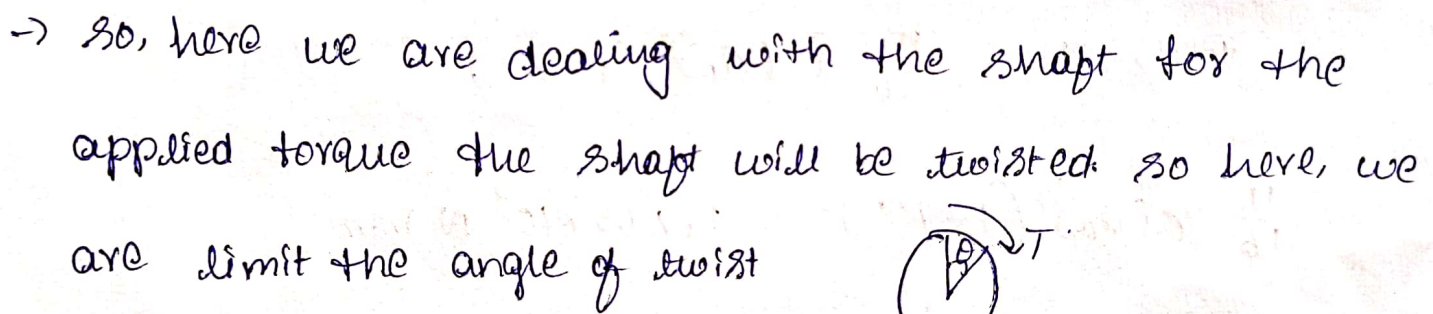 → so, here we are dealing with the shaft for the
applied torque the shaft will be twisted. so here, we
are limit the angle of twist
θ T